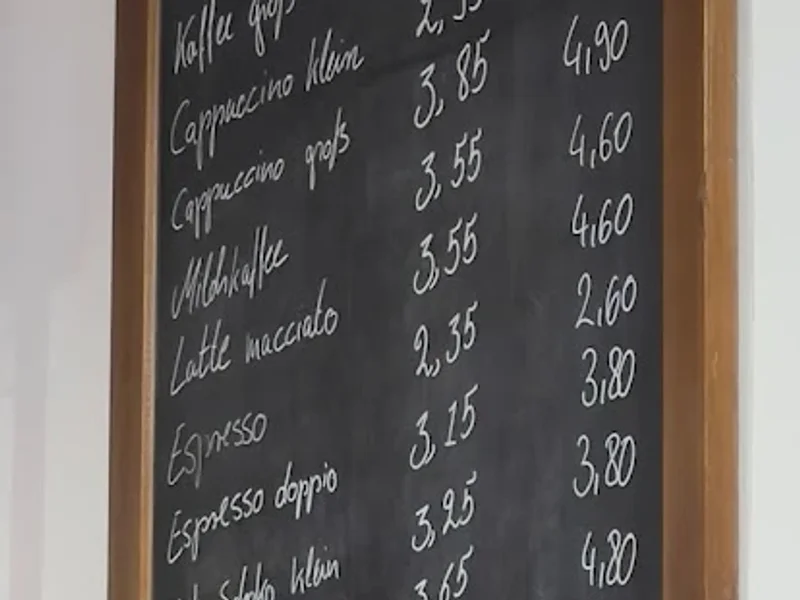 Kaffee groß
Cappuccino klein
Cappuccino groß 3,85 4,90
Milchkaffee 3,55 4,60
Latte macciato 3,55 4,60
Espresso 2,35 2,60
Espresso doppio 3,15 3,80
Schoko klein 3,25 3,80
3,65 4,80